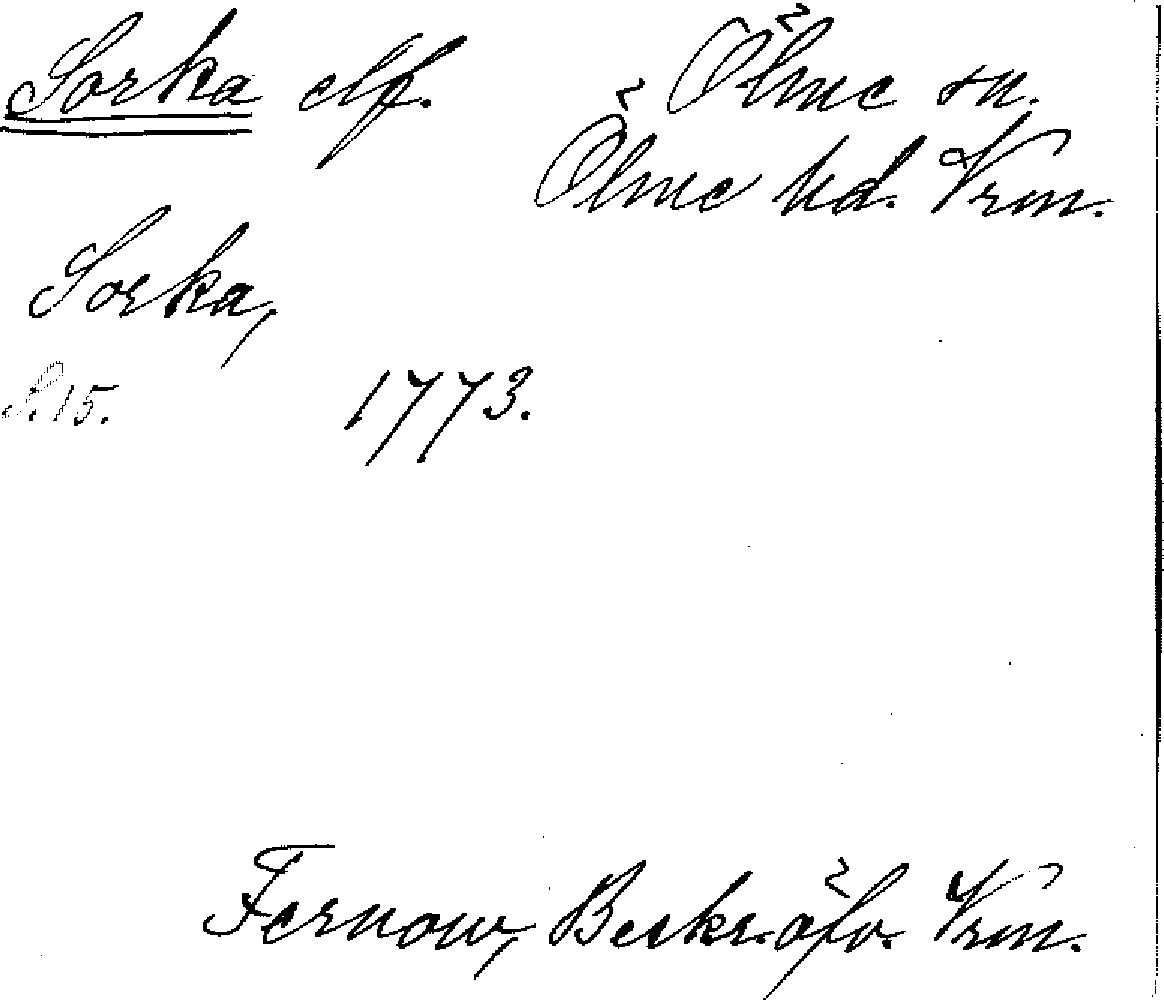 Sorka elf. Ölme sn.
Ölme hd. Vrm.
Sorka,
S. 15. 1773.
Fernow, Beskr. öfv. Vrm.